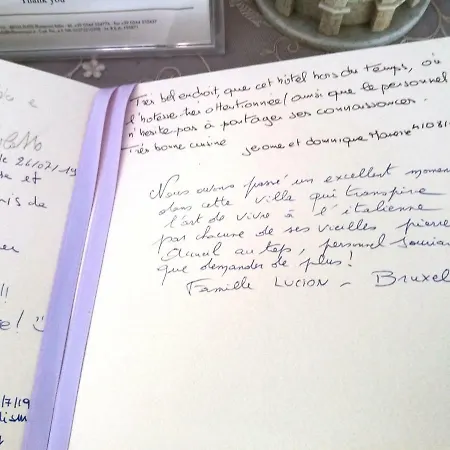 Thank you
Très bel endroit, que cet hôtel hors du temps, où
l'hotesse très attentionnée (ainsi que le personnel
n'hésite pas à partager ses connaissances.
Très bonne cuisine jerome et dominique
Nous avons passé un excellent moment
dans cette villa qui transpire
l'art de vivre à l'italienne
par chacune de ses vieilles pierre
Accueil au top, personnel souria
que demander de plus!
Famille LUCION - Bruxel
le 26/07/19
e et
is de
!!
e! :)
/7/19